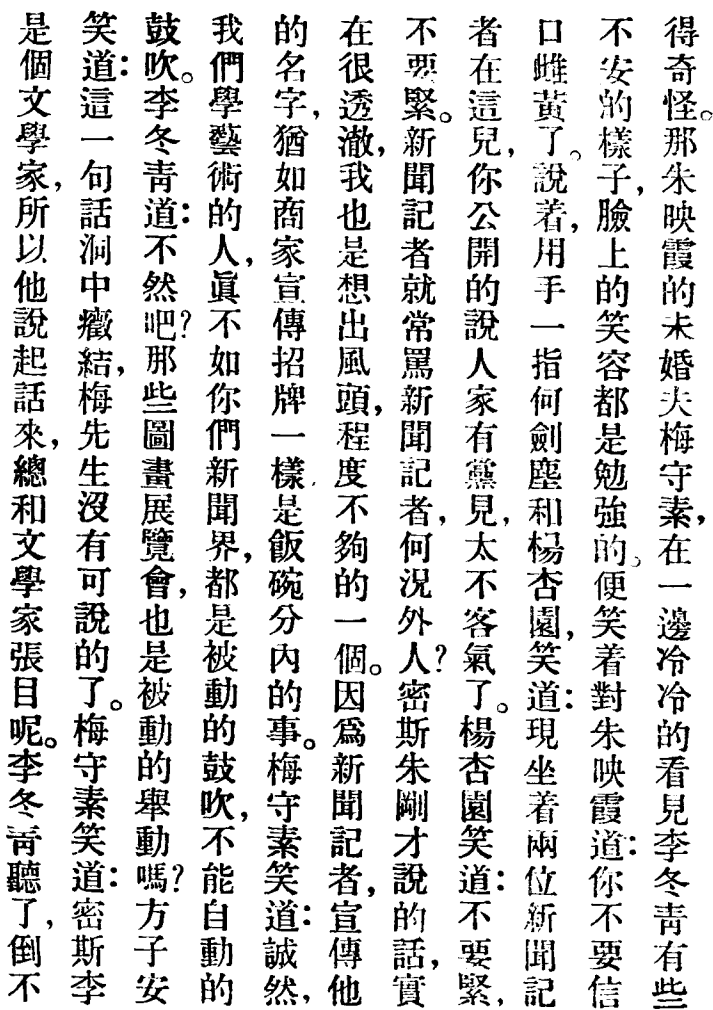 得奇怪。那朱映霞的未婚夫梅守素，在一邊冷冷的看見李冬靑有些
不安的樣子，臉上的笑容都是勉強的。便笑着對朱映霞道：你不要信
口雌黃了。說着，用手一指何劍塵和楊杏園，笑道：現坐着兩位新聞記
者在這兒，你公開的說人家有黨見，太不客氣了。楊杏園笑道：不要緊，
不要緊。新聞記者就常罵新聞記者，何況外人？密斯朱剛才說的話，實
在很透澈，我也是想出風頭，程度不夠的一個。因爲新聞記者，宣傳他
的名字，猶如商家宣傳招牌一樣是飯碗分內的事。梅守素笑道：誠然，
我們學藝術的人，眞不如你們新聞界，都是被動的鼓吹，不能自動的
鼓吹。李冬靑道：不然吧？那些圖畫展覽會，也是被動的舉動嗎？方子安
笑道：這一句話洞中癥結，梅先生沒有可說的了。梅守素笑道：密斯李
是個文學家，所以他說起話來，總和文學家張目呢。李冬靑聽了，倒不